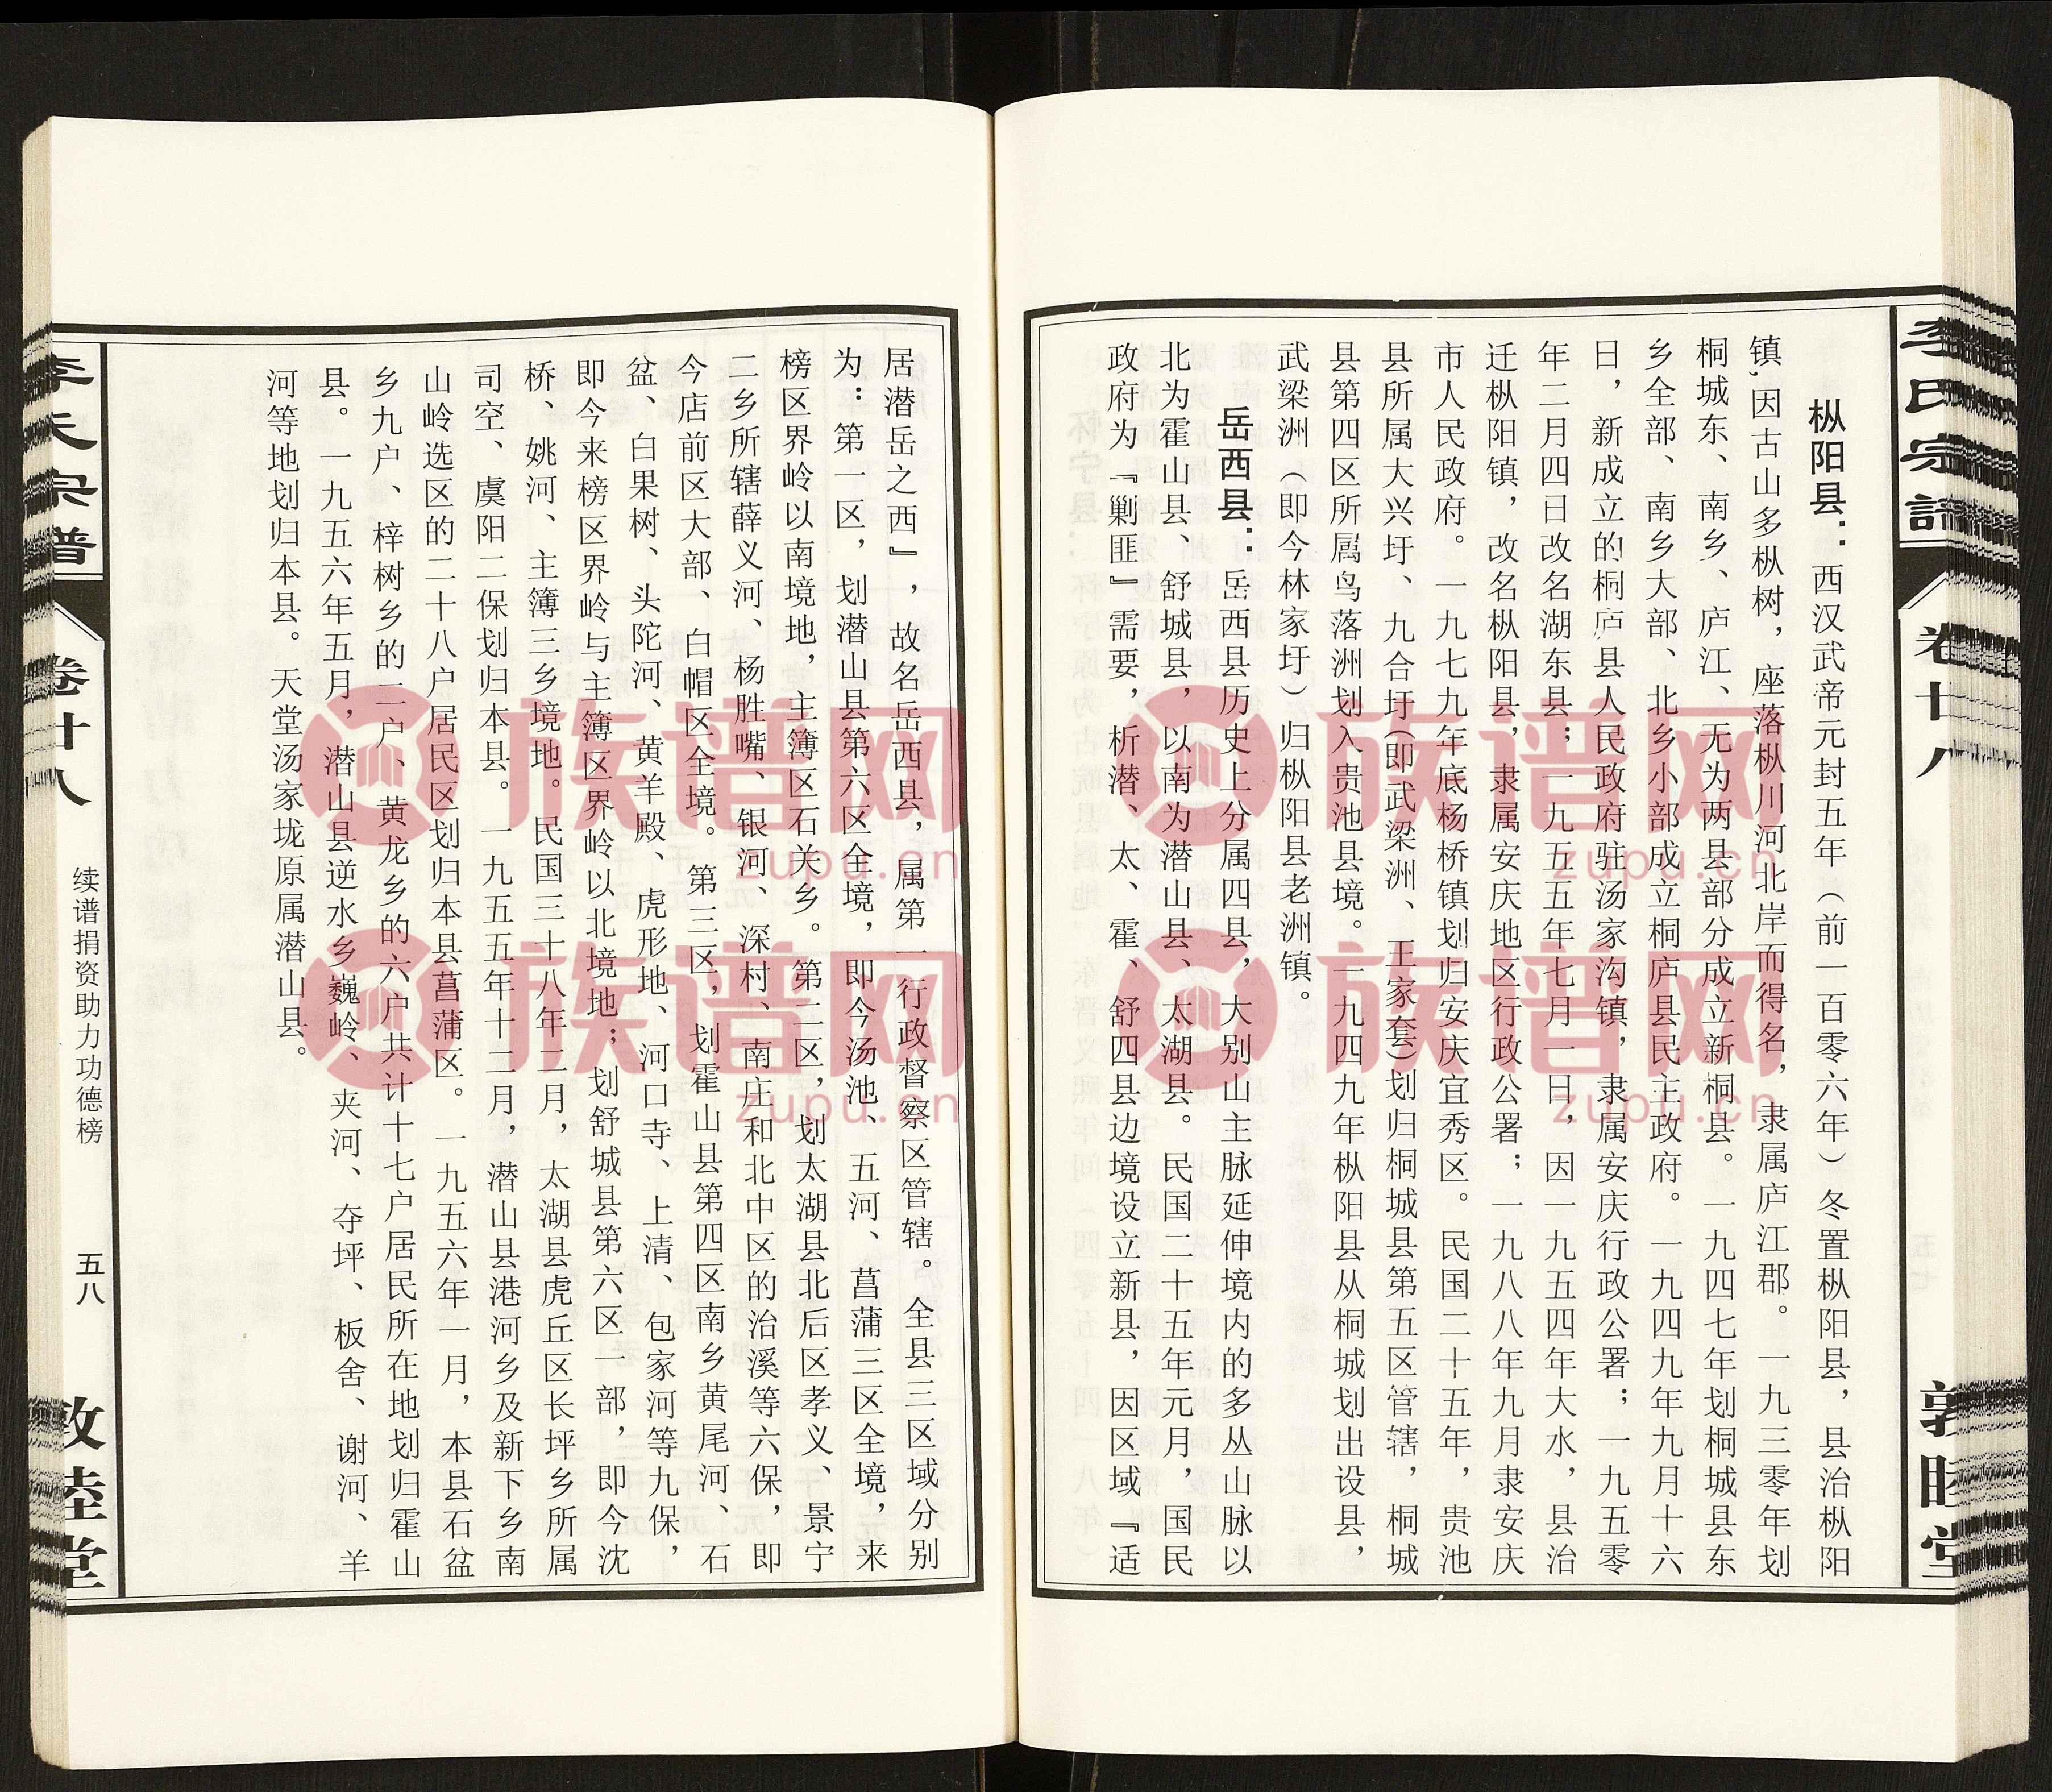 李氏宗譜
卷廿八
敦睦堂
枞阳县：西汉武帝元封五年（前一百零六年）冬置枞阳县，县治枞阳
镇，因古山多枞树，座落枞川河北岸而得名，隶属庐江郡。一九三零年划
桐城东、南乡、庐江、无为两县部分成立新桐县。一九四七年划桐城县东
乡全部、南乡大部、北乡小部成立桐庐县民主政府。一九四九年九月十六
日，新成立的桐庐县人民政府驻汤家沟镇，隶属安庆行政公署；一九五零
年二月四日改名湖东县；一九五五年七月一日，因一九五四年大水，县治
迁枞阳镇，改名枞阳县，隶属安庆地区行政公署；一九八八年九月隶安庆
市人民政府。一九七九年底杨桥镇划归安庆宜秀区。民国二十五年，贵池
县所属大兴圩、九合圩（即武梁洲、王家套）划归桐城县第五区管辖，桐城
县第四区所属鸟落洲划入贵池县境。一九四九年枞阳县从桐城划出设县，
武梁洲（即今林家圩）归枞阳县老洲镇。
岳西县：岳西县历史上分属四县，大别山主脉延伸境内的多丛山脉以
北为霍山县、舒城县，以南为潜山县、太湖县。民国二十五年元月，国民
政府为『剿匪』需要，析潜、太、霍、舒四县边境设立新县，因区域『适
居潜岳之西』，故名岳西县，属第一行政督察区管辖。全县三区域分别
为：第一区，划潜山县第六区全境，即今汤池、五河、菖蒲三区全境，来
榜区界岭以南境地，主簿区石关乡。第二区，划太湖县北后区孝义、景宁
二乡所辖薛义河、杨胜嘴、银河、深村、南庄和北中区的治溪等六保，即
今店前区大部、白帽区全境。第三区，划霍山县第四区南乡黄尾河、石
盆、白果树、头陀河、黄羊殿、虎形地、河口寺、上清、包家河等九保，
即今来榜区界岭与主簿区界岭以北境地；划舒城县第六区一部，即今沈
桥、姚河、主簿三乡境地。民国三十八年二月，太湖县虎丘区长坪乡所属
司空、虞阳二保划归本县。一九五五年十二月，潜山县港河乡及新下乡南
山岭选区的二十八户居民区划归本县菖蒲区。一九五六年一月，本县石盆
乡九户、梓树乡的二户、黄龙乡的六户共计十七户居民所在地划归霍山
县。一九五六年五月，潜山县逆水乡巍岭、夹河、夺坪、板舍、谢河、羊
河等地划归本县。天堂汤家垅原属潜山县。
李氏宗谱
卷廿八
续谱捐资助力功德榜
五八
敦睦堂
族谱网
zupu.cn
族谱网
zupu.cn
族谱网
zupu.cn
族谱网
zupu.cn